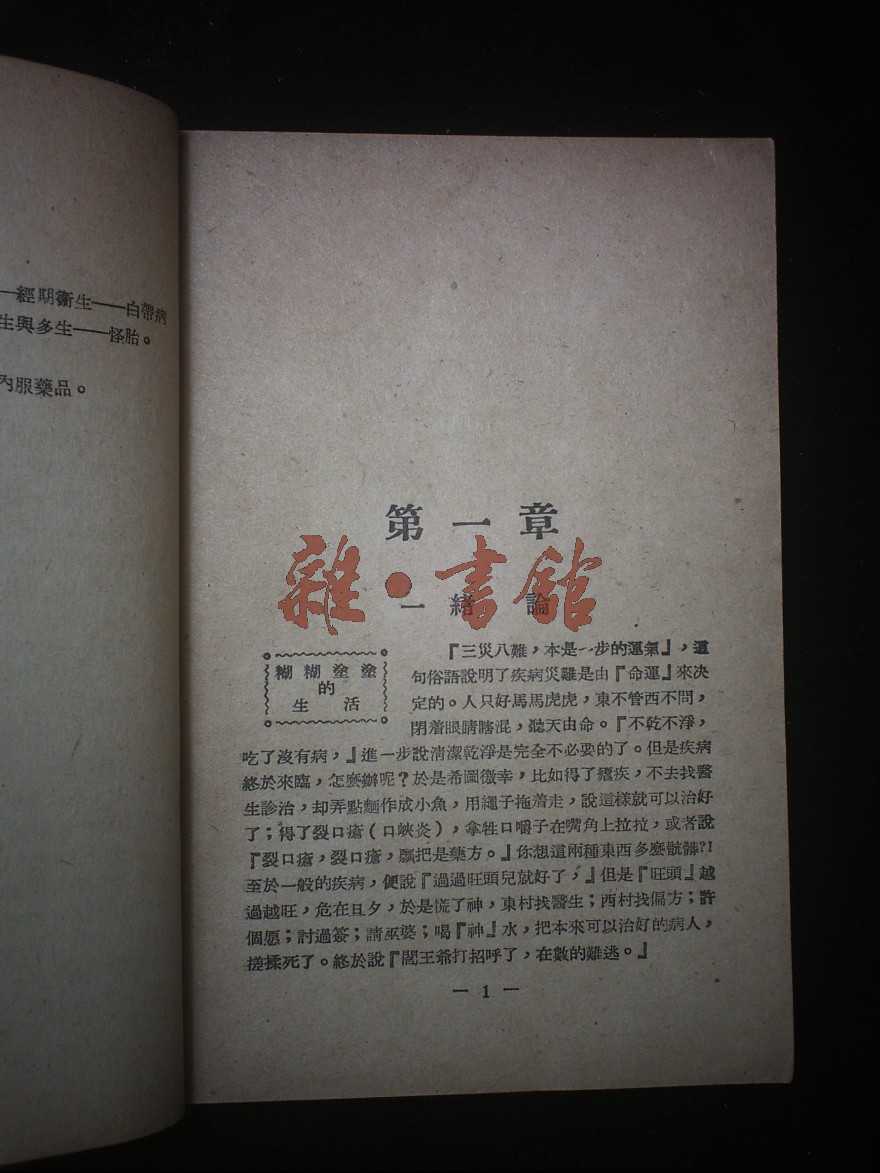 經期衞生——白帶病
生與多生——怪胎。
內服藥品。
第一章
雜·書館
一 緒 論
糊糊塗塗
的
生 活
『三災八難，本是一步的運氣』，這
句俗語說明了疾病災難是由『命運』來决
定的。人只好馬馬虎虎，東不管西不問，
閉着眼睛瞎混，聽天由命。『不乾不淨，
吃了沒有病，』進一步說清潔乾淨是完全不必要的了。但是疾病
終於來臨，怎麼辦呢？於是希圖徼幸，比如得了瘧疾，不去找醫
生診治，却弄點麵作成小魚，用繩子拖着走，說這樣就可以治好
了；得了裂口瘡（口峽炎），拿牲口嚼子在嘴角上拉拉，或者說
『裂口瘡，裂口瘡，瓢把是藥方。』你想這兩種東西多麼骯髒？！
至於一般的疾病，便說『過過旺頭兒就好了，』但是『旺頭』越
過越旺，危在旦夕，於是慌了神，東村找醫生；西村找偏方；許
個愿；討過簽；請巫婆；喝『神』水，把本來可以治好的病人，
搓揉死了。終於說『閻王爺打招呼了，在數的難逃。』
— 1 —